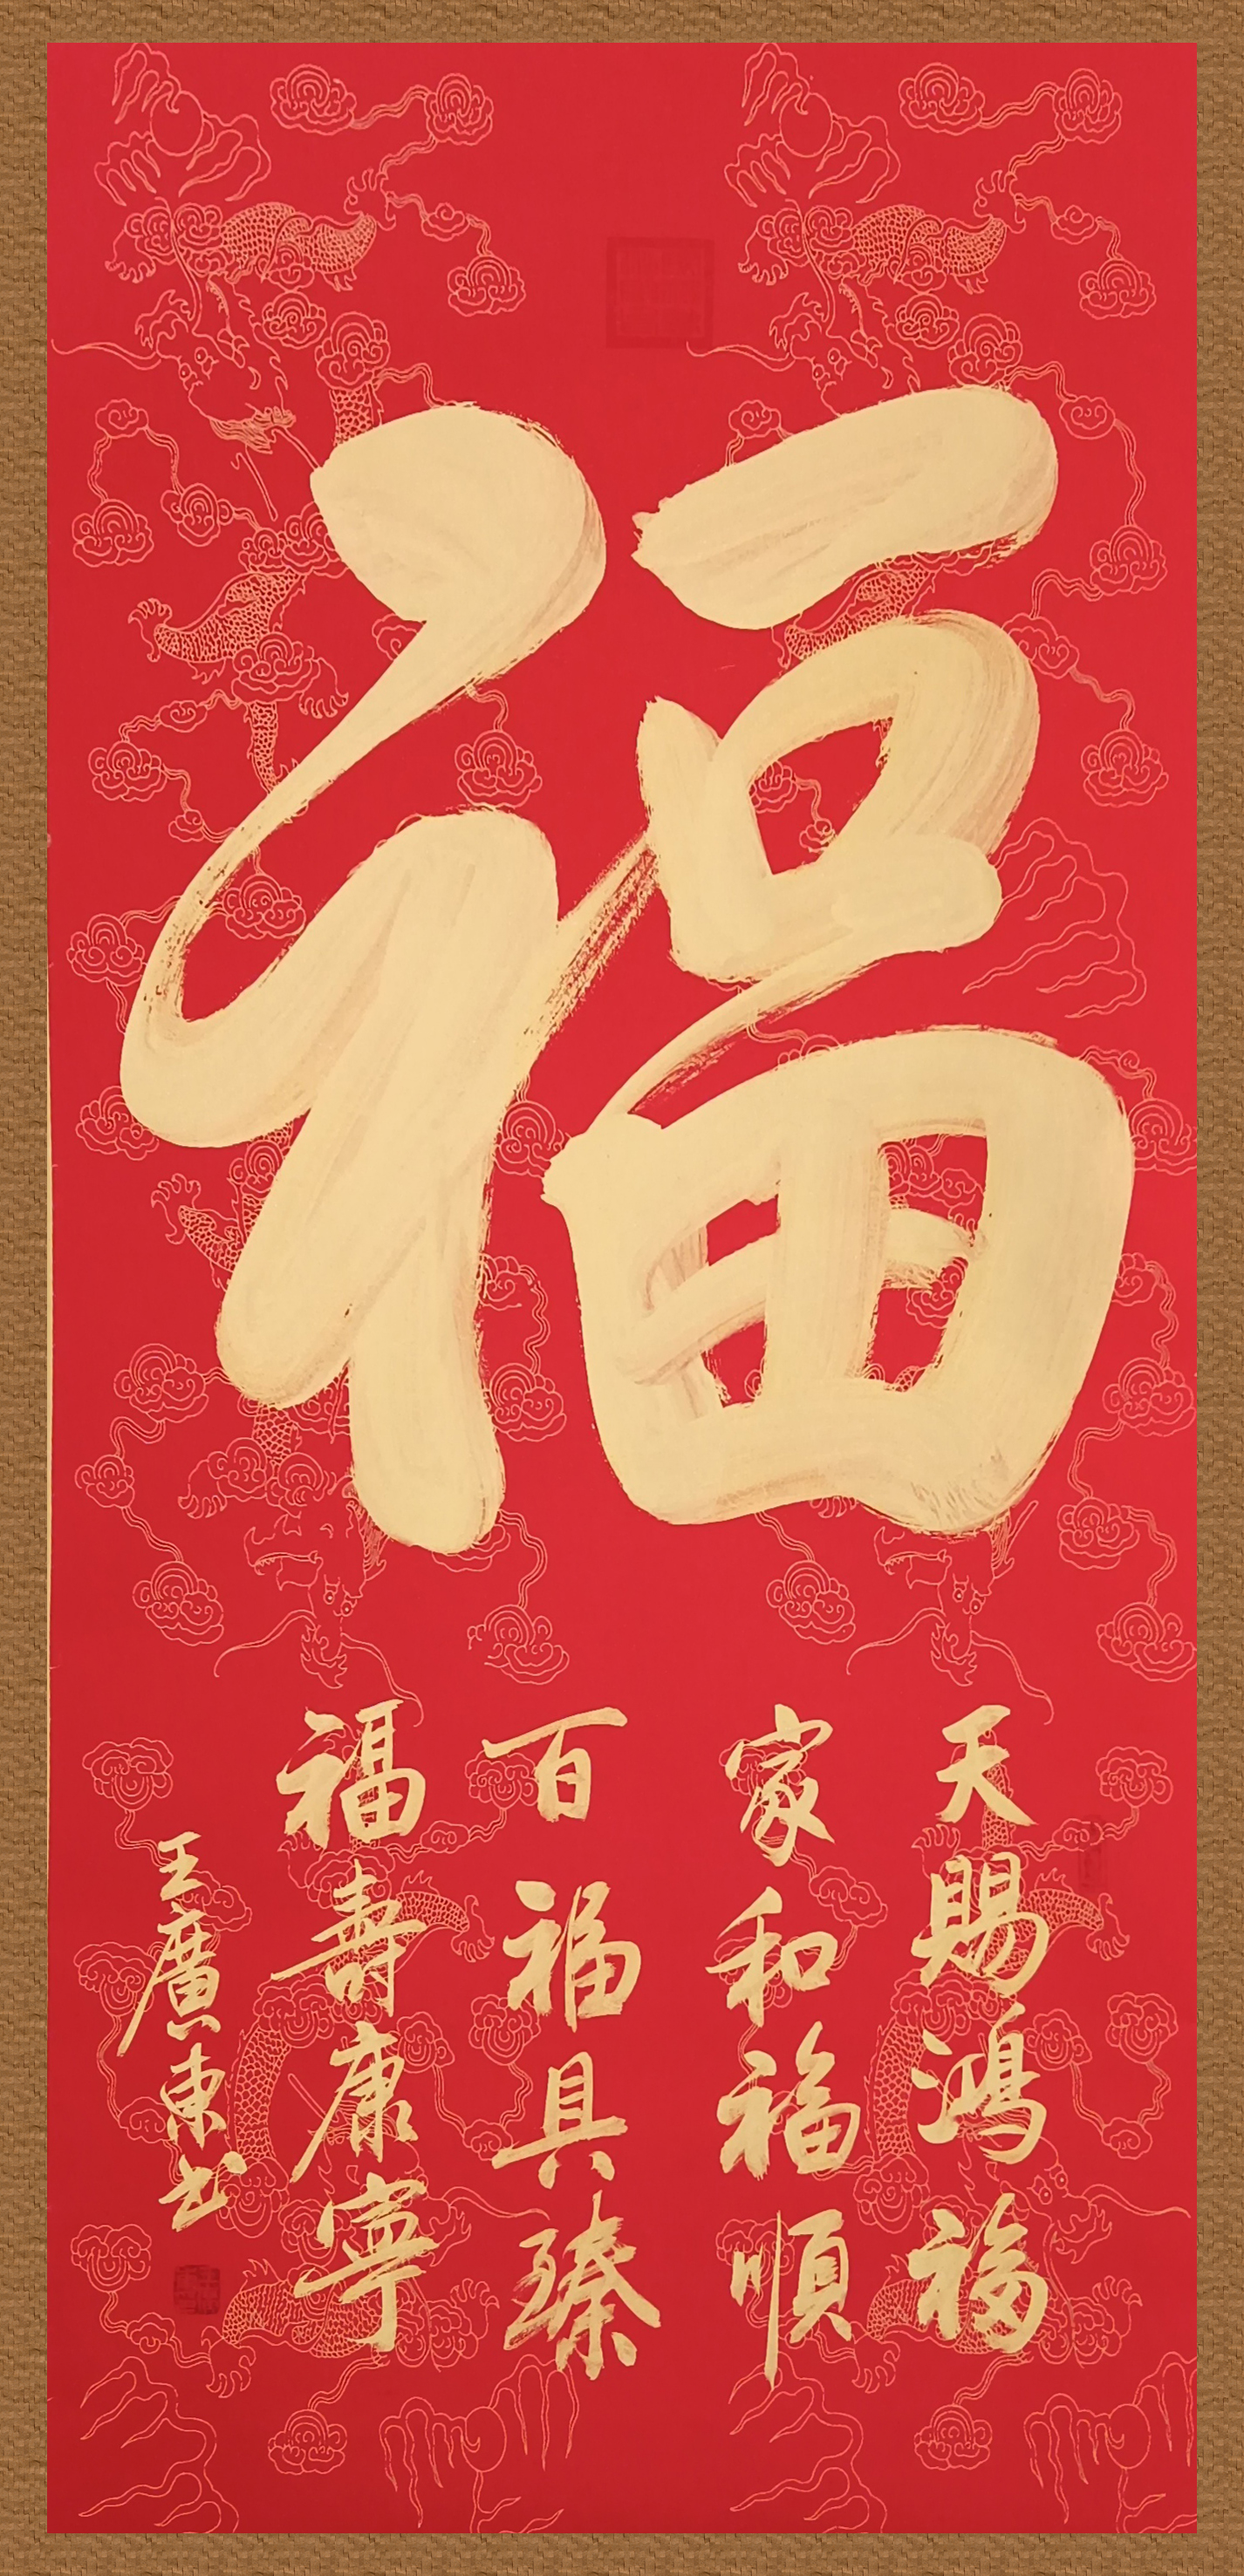 福
天賜鴻福
家和福順
百福具臻
福壽康寧
王廣東书